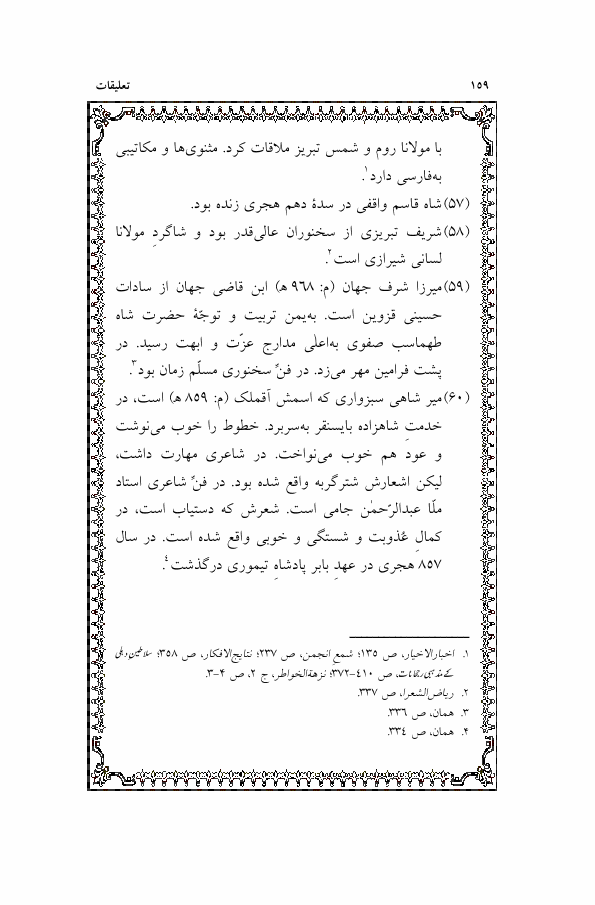 تعلیقات ۱۵۹
با مولانا روم و شمس تبریز ملاقات کرد. مثنوی‌ها و مکاتیبی
به‌فارسی دارد۱.
(۵۷) شاه قاسم واقفی در سدهٔ دهم هجری زنده بود.
(۵۸) شریف تبریزی از سخنوران عالی‌قدر بود و شاگردِ مولانا
لسانی شیرازی است۲.
(۵۹) میرزا شرف جهان (م: ۹۶۸ ه‍) ابن قاضی جهان از سادات
حسینی قزوین است. به‌یمن تربیت و توجّهٔ حضرت شاه
طهماسب صفوی به‌اعلٰی مدارج عزّت و ابهت رسید. در
پشت فرامین مهر می‌زد. در فنِّ سخنوری مسلّم زمان بود۳.
(۶۰) میر شاهی سبزواری که اسمش آقملک (م: ۸۵۹ ه‍) است، در
خدمتِ شاهزاده بایسنقر به‌سربرد. خطوط را خوب می‌نوشت
و عود هم خوب می‌نواخت. در شاعری مهارت داشت،
لیکن اشعارش شترگربه واقع شده بود. در فنِّ شاعری استاد
ملّا عبدالرّحمٰن جامی است. شعرش که دستیاب است، در
کمالِ عُذوبت و شستگی و خوبی واقع شده است. در سال
۸۵۷ هجری در عهدِ بابر پادشاهِ تیموری درگذشت۴.
۱. اخبارالاخیار، ص ۱۳۵؛ شمع انجمن، ص ۲۳۷؛ نتایج‌الافکار، ص ۳۵۸؛ سلاطین دہلی
کے مذہبی رجحانات، ص ۴۱۰-۳۷۲؛ نزهةالخواطر، ج ۲، ص ۴-۳.
۲. ریاض‌الشعرا، ص ۳۳۷.
۳. همان، ص ۳۳۶.
۴. همان، ص ۳۳۴.